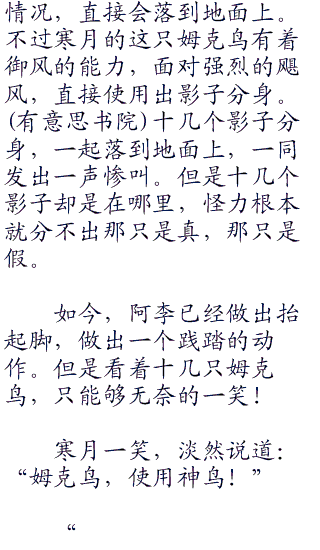 情况，直接会落到地面上。
不过寒月的这只姆克鸟有着
御风的能力，面对强烈的飓
风，直接使用出影子分身。
(有意思书院)十几个影子分
身，一起落到地面上，一同
发出一声惨叫。但是十几个
影子却是在哪里，怪力根本
就分不出那只是真，那只是
假。
如今，阿李已经做出抬
起脚，做出一个践踏的动
作。但是看着十几只姆克
鸟，只能够无奈的一笑！
寒月一笑，淡然说道：
“姆克鸟，使用神鸟！”
“